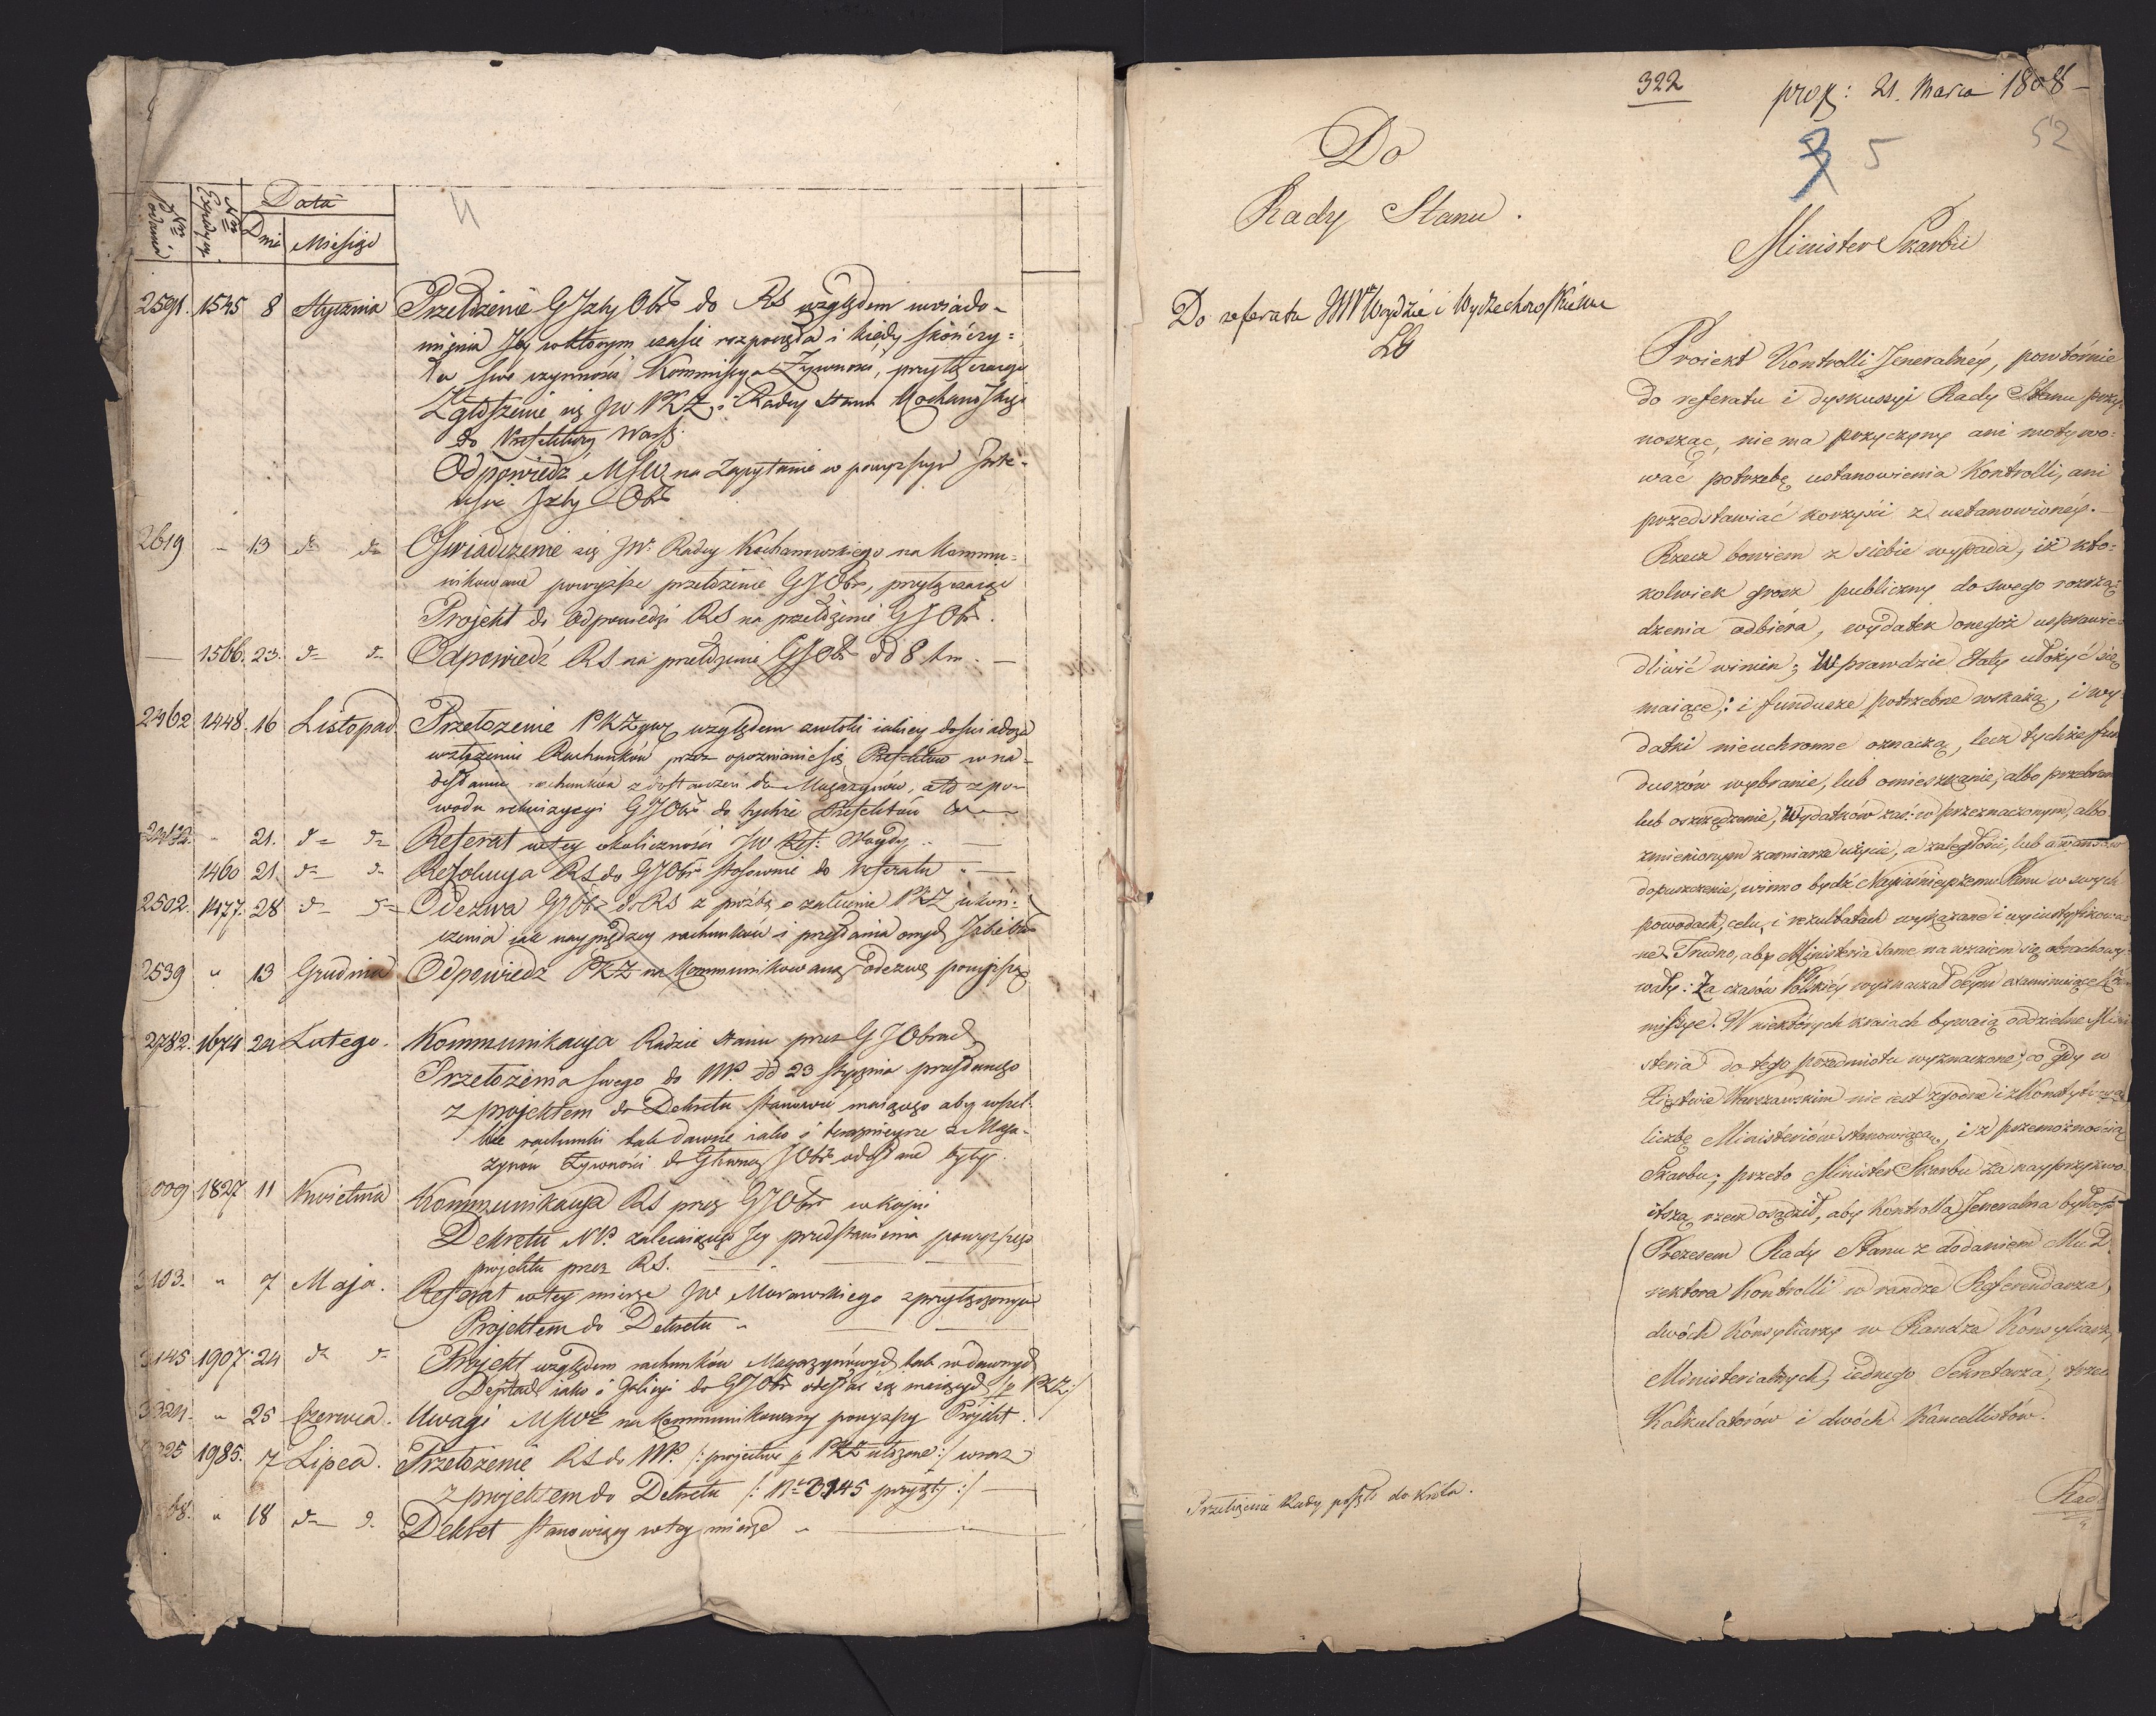 Nro Podania
Nro Expedycyi
Data
Dni
Miesiąc
2591. 1545 8 Stycznia Przełożenie G Izby Obr do RS względem uwiado-
mienia Jey wktórym czasie rozpoczęła i kiedy skończy-
ła swe czynności Kommissya Żywności, przyłączaiąc
Zgłoszenie się JW PKZ i Radcy Stanu Kochanowskiego
do Prefektury Warsz.
Odpowiedź MSW na Zapytanie w powyższym Inte-
resie Izby Obr
2619 – 13 do do Oświadczenie się JW. Radcy Kochanowskiego na kommu-
nikowane powyższe przełożenie GIObr, przyłączaiąc
Projekt do odpowiedzi RS na przełożenie GIObr.
1566. 23. do do Odpowiedź RS na przełożenie GIObr dd 8. t.m. –
2462 1448. 16 Listopad. Przełożenie PKŻyw względem zwłoki iakiey doświadcza
wzłożeniu Rachunków przez opoznianie się Prefektów w na-
desłaniu rachunków z dostarczeń do Magazynów, a to z po-
wodu rekwizycyi GIObr do tychże Prefektów
21. do do Referat wtey okoliczności JW Ref: Woydy
1460 21. do do Rezolucya RS do GIObr stosownie do referatu
2502. 1477. 28 do do Odezwa GIObr do RS z prośbą o zalecenie PKZ ukoń-
czenia iak nayprędzey rachunków i przesłania onych Izbie Obr
2539 " 13 Grudnia Odpowiedź PKZ na kommunikowaną odezwę powyższą
2782. 1674 24 Lutego. Kommunikacya Radzie Stanu przez GIObrach.
Przełożenia swego do NP. dd 23 Stycznia przesłanego
z projektem do Dekretu stanowić maiącego aby wszel-
kie rachunki tak dawne iako i teraznieysze z Maga-
zynów Żywności do Główney IObr odesłane były.
3009 1827 11 Kwietnia Kommunikacya RS przez GIObr w kopii
Dekretu NP. zalecaiącego Jey przedstawienia powyższego
projektu przez RS.
3103. " 7 Maja. Referat wtey mierze JW Morawskiego z przyłączonym
Projektem do Dekretu "
3145 1907 24 do do Projekt względem rachunków Magazynowych tak w dawnych
Depttach iako i Galicyi do GIObr odesłać się maiących /: p PKZ:/
3324. " 25 Czerwca. Uwagi MSWz na kommunikowany powyższy Projekt.
3325 1985. 7 Lipca. Przełożenie RS do NP. /: projective p PKZ ułożone:/ wraz
z projektem do Dekretu /: Nro 3145 przyłt:/
68. " 18 do do Dekret stanowiący wtey mierze "
322
proz: 21. Marca 1808 –
3 5
52
Do
Rady Stanu.
Minister Skarbu
Do referatu JWW Woydzie i Wyczechowskiemu
Proiekt Kontrolli Jeneralnéy, powtórnie
do referatu i dyskussyi Rady Stanu przy
nosząc, niema przyczyny ani motywo-
wać potrzebę ustanowienia Kontrolli, ani
przedstawiać korzyści z ustanowionéy. –
Rzecz bowiem z siebie wypada, iż kto-
kolwiek grosz publiczny do swego rozrzą-
dzenia odbiera, wydatek onegoż usprawie-
dliwić winien; Wprawdzie Etaty ułożyć się
maiące; i fundusze potrzebne wskażą, i wy-
datki nieuchronne oznaczą, lecz tychże fun
duszów wybranie, lub omieszkanie, albo przebran
lub oszczędzenie, Wydatków zaś: w przeznaczonym, albo
zmienionym zamiarze użycie, a zaległości, lub awansów
dopuszczenie, winno bydź Nayiaśnieyszemu Panu w swych
powodach, celu, i rezultatach wykazane i wyiustyfikowa-
ne. Trudno, aby Ministeria same na wzaiem się obrachowy-
wały: Za czasów Polskiéy wyznaczał Seym examinuiące Kom
missye. W niektórych kraiach bywaią oddzielne Mini
steria do tego przedmiotu wyznaczone; co gdy w
Xięstwie Warszawskim nie iest zgodne i z Konstytucyą
liczbę Ministeriów stanowiącą, i z przemożnością
Skarbu; przeto Minister Skarbu za nayprzyzwo-
itszą rzecz osądził, aby Kontrolla Jeneralna była pod
Prezesem Rady Stanu z dodaniem Mu D.
rektora Kontrolli w randze Referendarza,
dwóch Konsyliarzy w Randze Konsyliarzy
Ministerialnych, iednego Sekretarza, trzech
Kalkulatorów i dwóch Kancellistów.
Przełożenie Rady poszło do Króla.
Rad